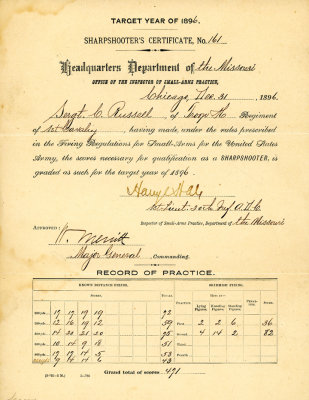 TARGET YEAR OF 1896.
SHARPSHOOTER'S CERTIFICATE, No. 161
Headquarters Department of the Missouri
OFFICE OF THE INSPECTOR OF SMALL-ARMS PRACTICE,
Chicago, Dec. 31, 1896.
Sergt. C. Russell, of Troop H. Regiment
of 1st Cavalry, having made, under the rules prescribed
in the Firing Regulations for Small-Arms for the United States
Army, the scores necessary for qualification as a SHARPSHOOTER, is
graded as such for the target year of 1896.
1st Lieut. 20th Inf. A.D.C.
Inspector of Small-Arms Practice, Department of the Missouri
APPROVED:
W. Merritt
Major General, Commanding.
RECORD OF PRACTICE.
KNOWN DISTANCE FIRING. SKIRMISH FIRING.
SCORES. TOTAL. HITS ON— TOTAL
Lying Figures. Kneeling Figures. Standing Figures.
17 17 19 19 72
12 16 19 12 59 First 2 2 6 36
14 20 21 20 75 Second 4 14 2 82
10 14 9 18 51 Third
17 14 5 53 Fourth
9 14 14 6 43
Grand total of scores 471